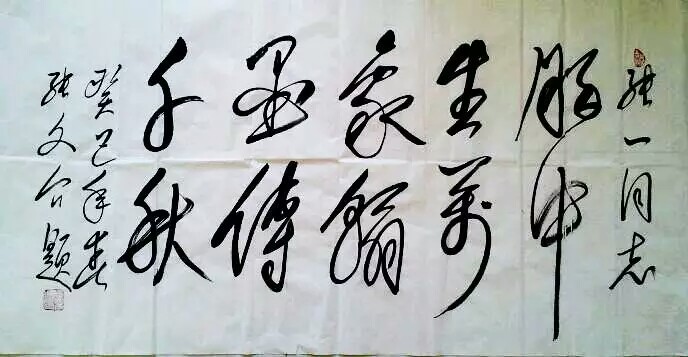 张一同志
胸中
生万
象翰
墨传
千秋
癸巳年春
张文台题